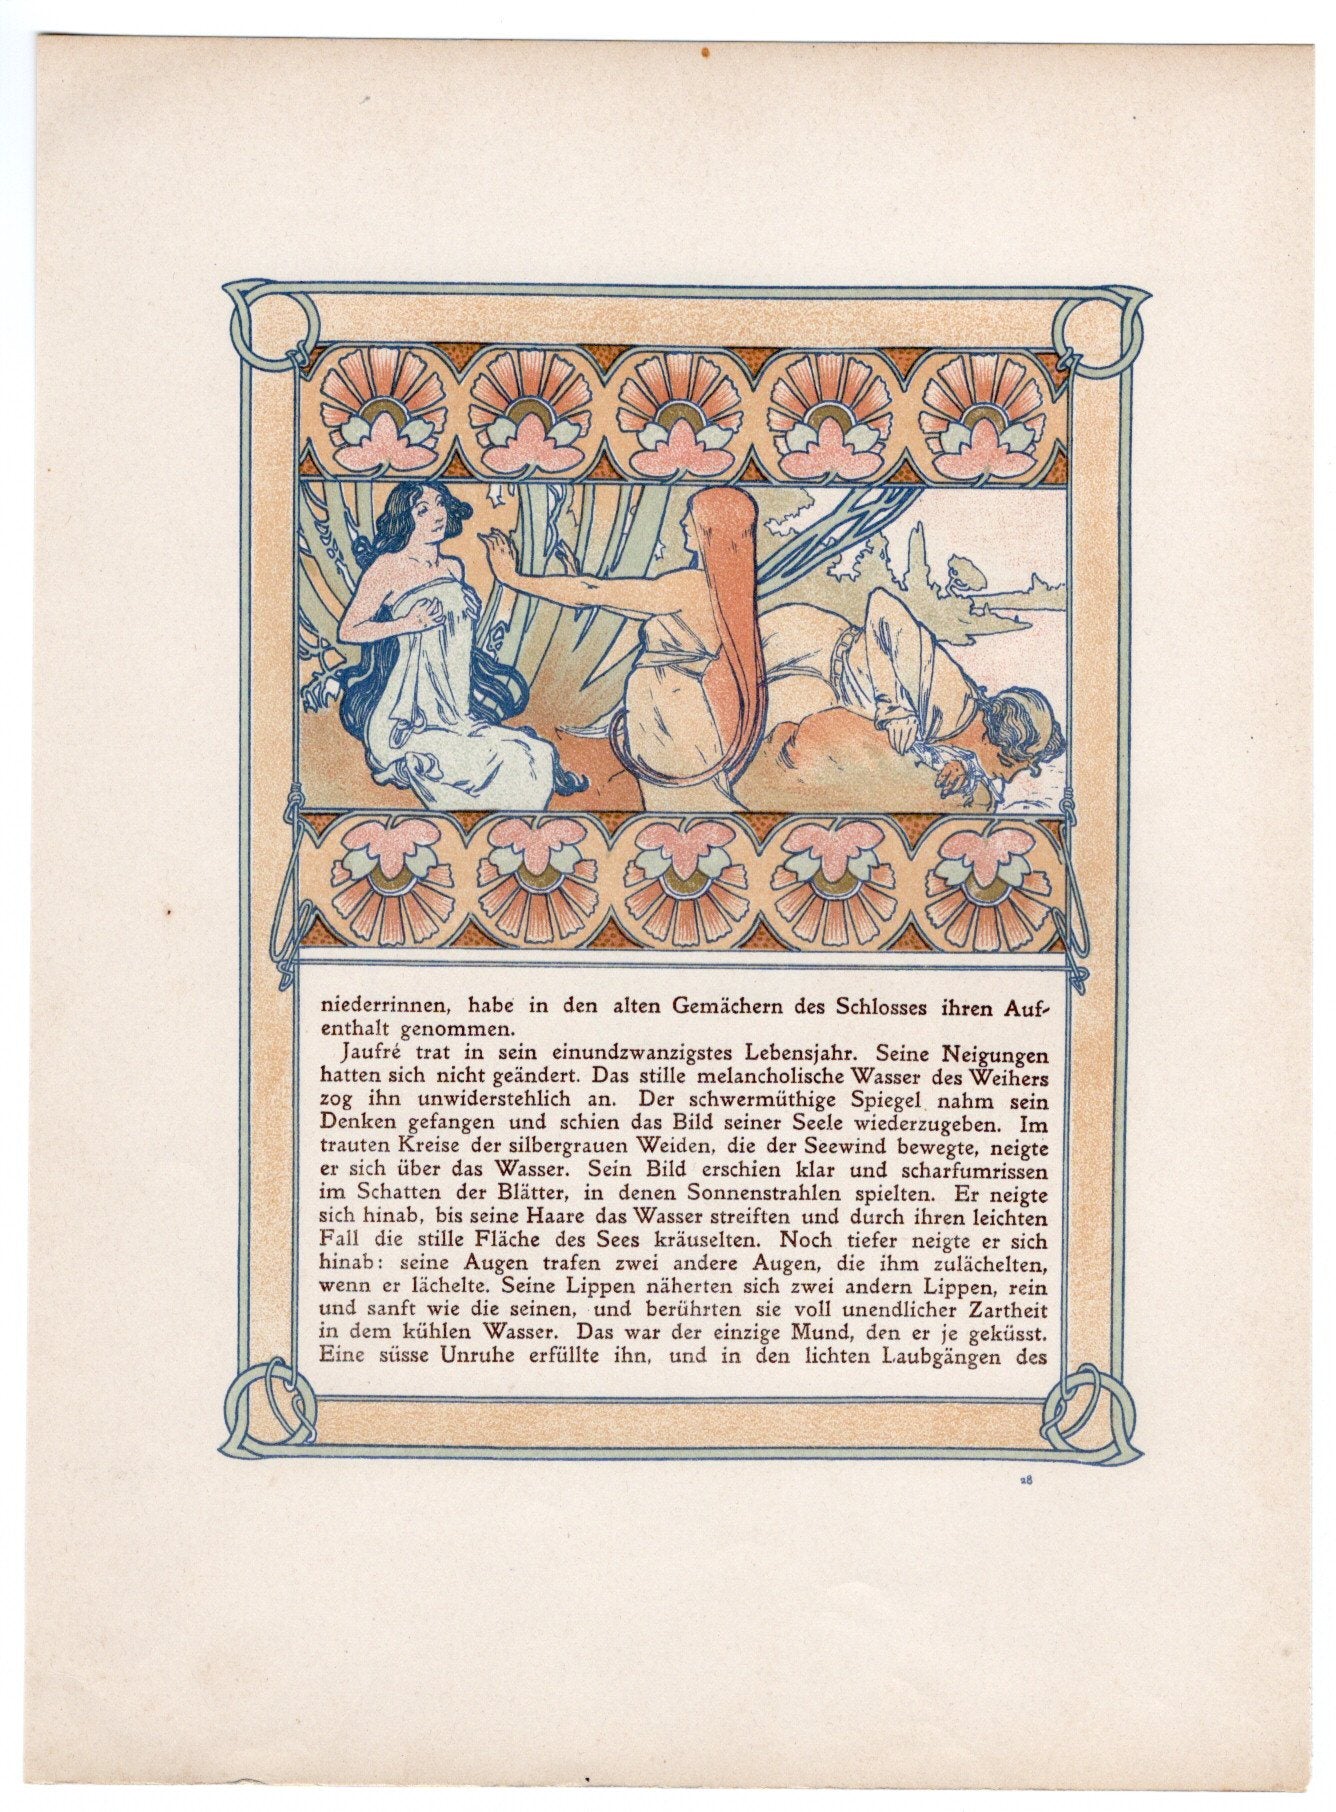 niederrinnen, habe in den alten Gemächern des Schlosses ihren Auf-
enthalt genommen.
Jaufré trat in sein einundzwanzigstes Lebensjahr. Seine Neigungen
hatten sich nicht geändert. Das stille melancholische Wasser des Weihers
zog ihn unwiderstehlich an. Der schwermüthige Spiegel nahm sein
Denken gefangen und schien das Bild seiner Seele wiederzugeben. Im
trauten Kreise der silbergrauen Weiden, die der Seewind bewegte, neigte
er sich über das Wasser. Sein Bild erschien klar und scharfumrissen
im Schatten der Blätter, in denen Sonnenstrahlen spielten. Er neigte
sich hinab, bis seine Haare das Wasser streiften und durch ihren leichten
Fall die stille Fläche des Sees kräuselten. Noch tiefer neigte er sich
hinab: seine Augen trafen zwei andere Augen, die ihm zulächelten,
wenn er lächelte. Seine Lippen näherten sich zwei andern Lippen, rein
und sanft wie die seinen, und berührten sie voll unendlicher Zartheit
in dem kühlen Wasser. Das war der einzige Mund, den er je geküsst.
Eine süsse Unruhe erfüllte ihn, und in den lichten Laubgängen des
28